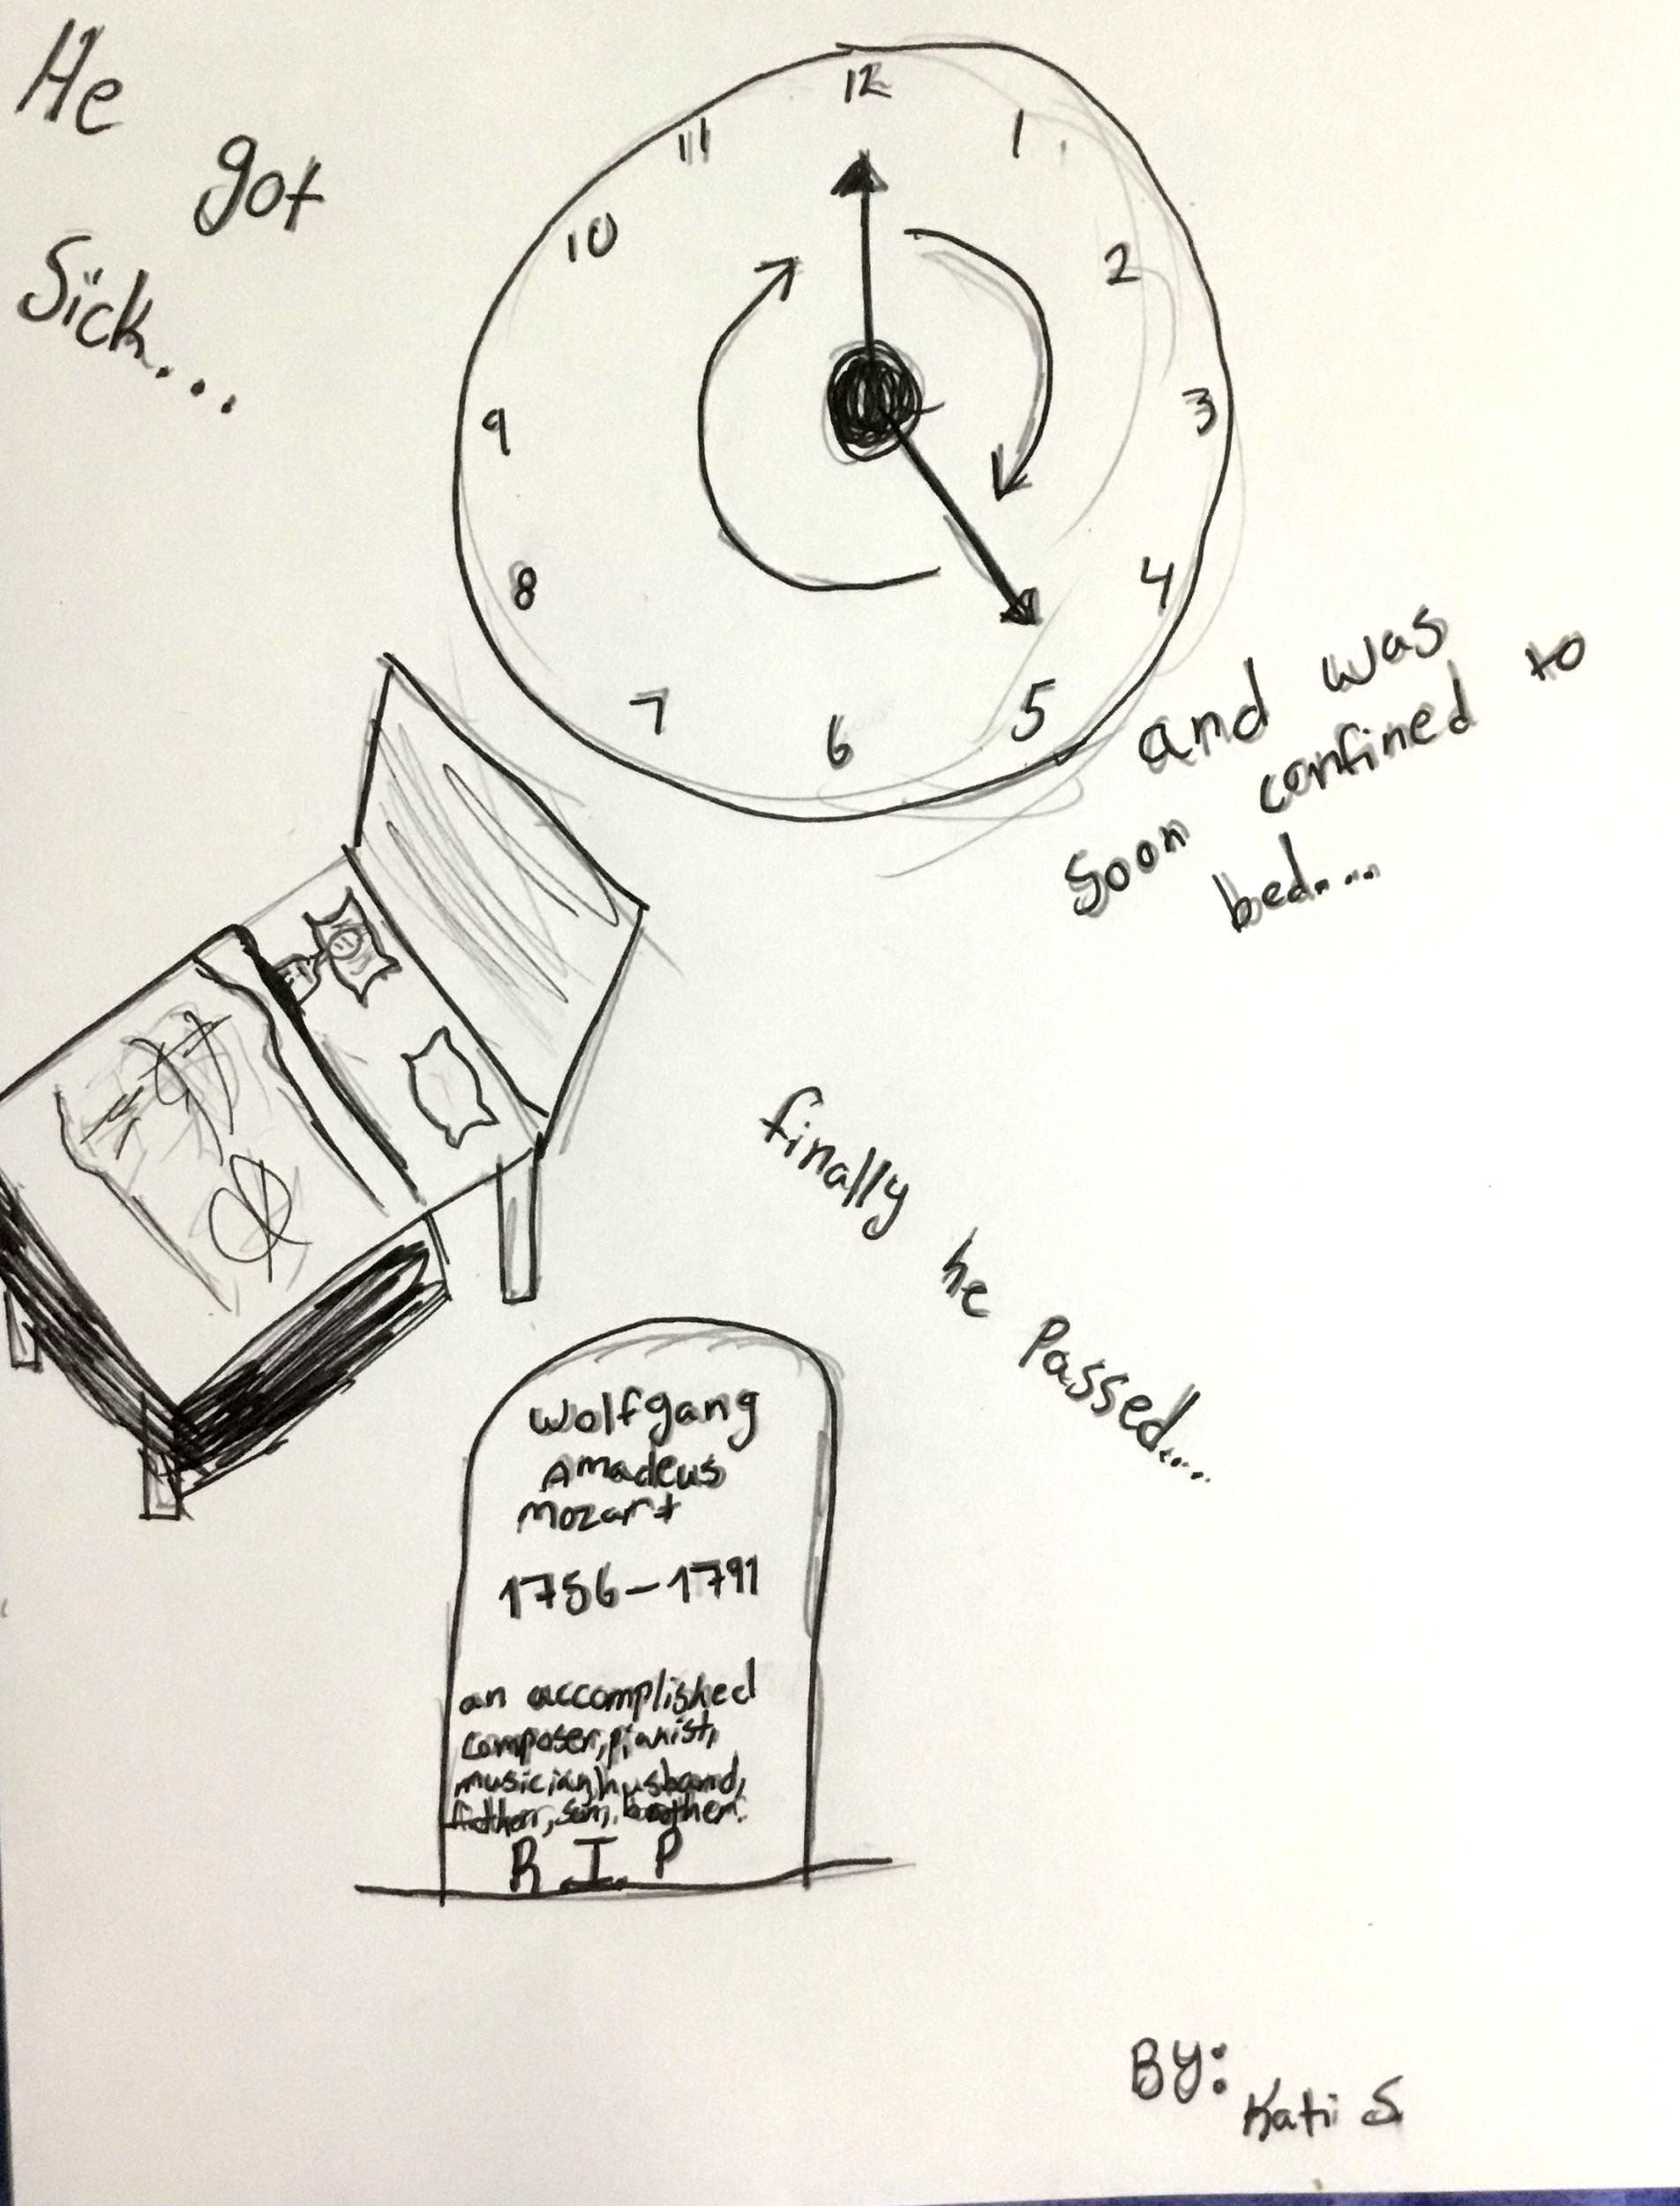 He
got
Sick...
12
11
1
10
2
9
3
8
4
7
5
6
and was
soon confined to
bed....
finally he Passed....
Wolfgang
Amadeus
Mozart
1756-1791
an accomplished
composer, pianist,
musician, husband,
father, son, brother.
R.I.P
BY:
Kati S